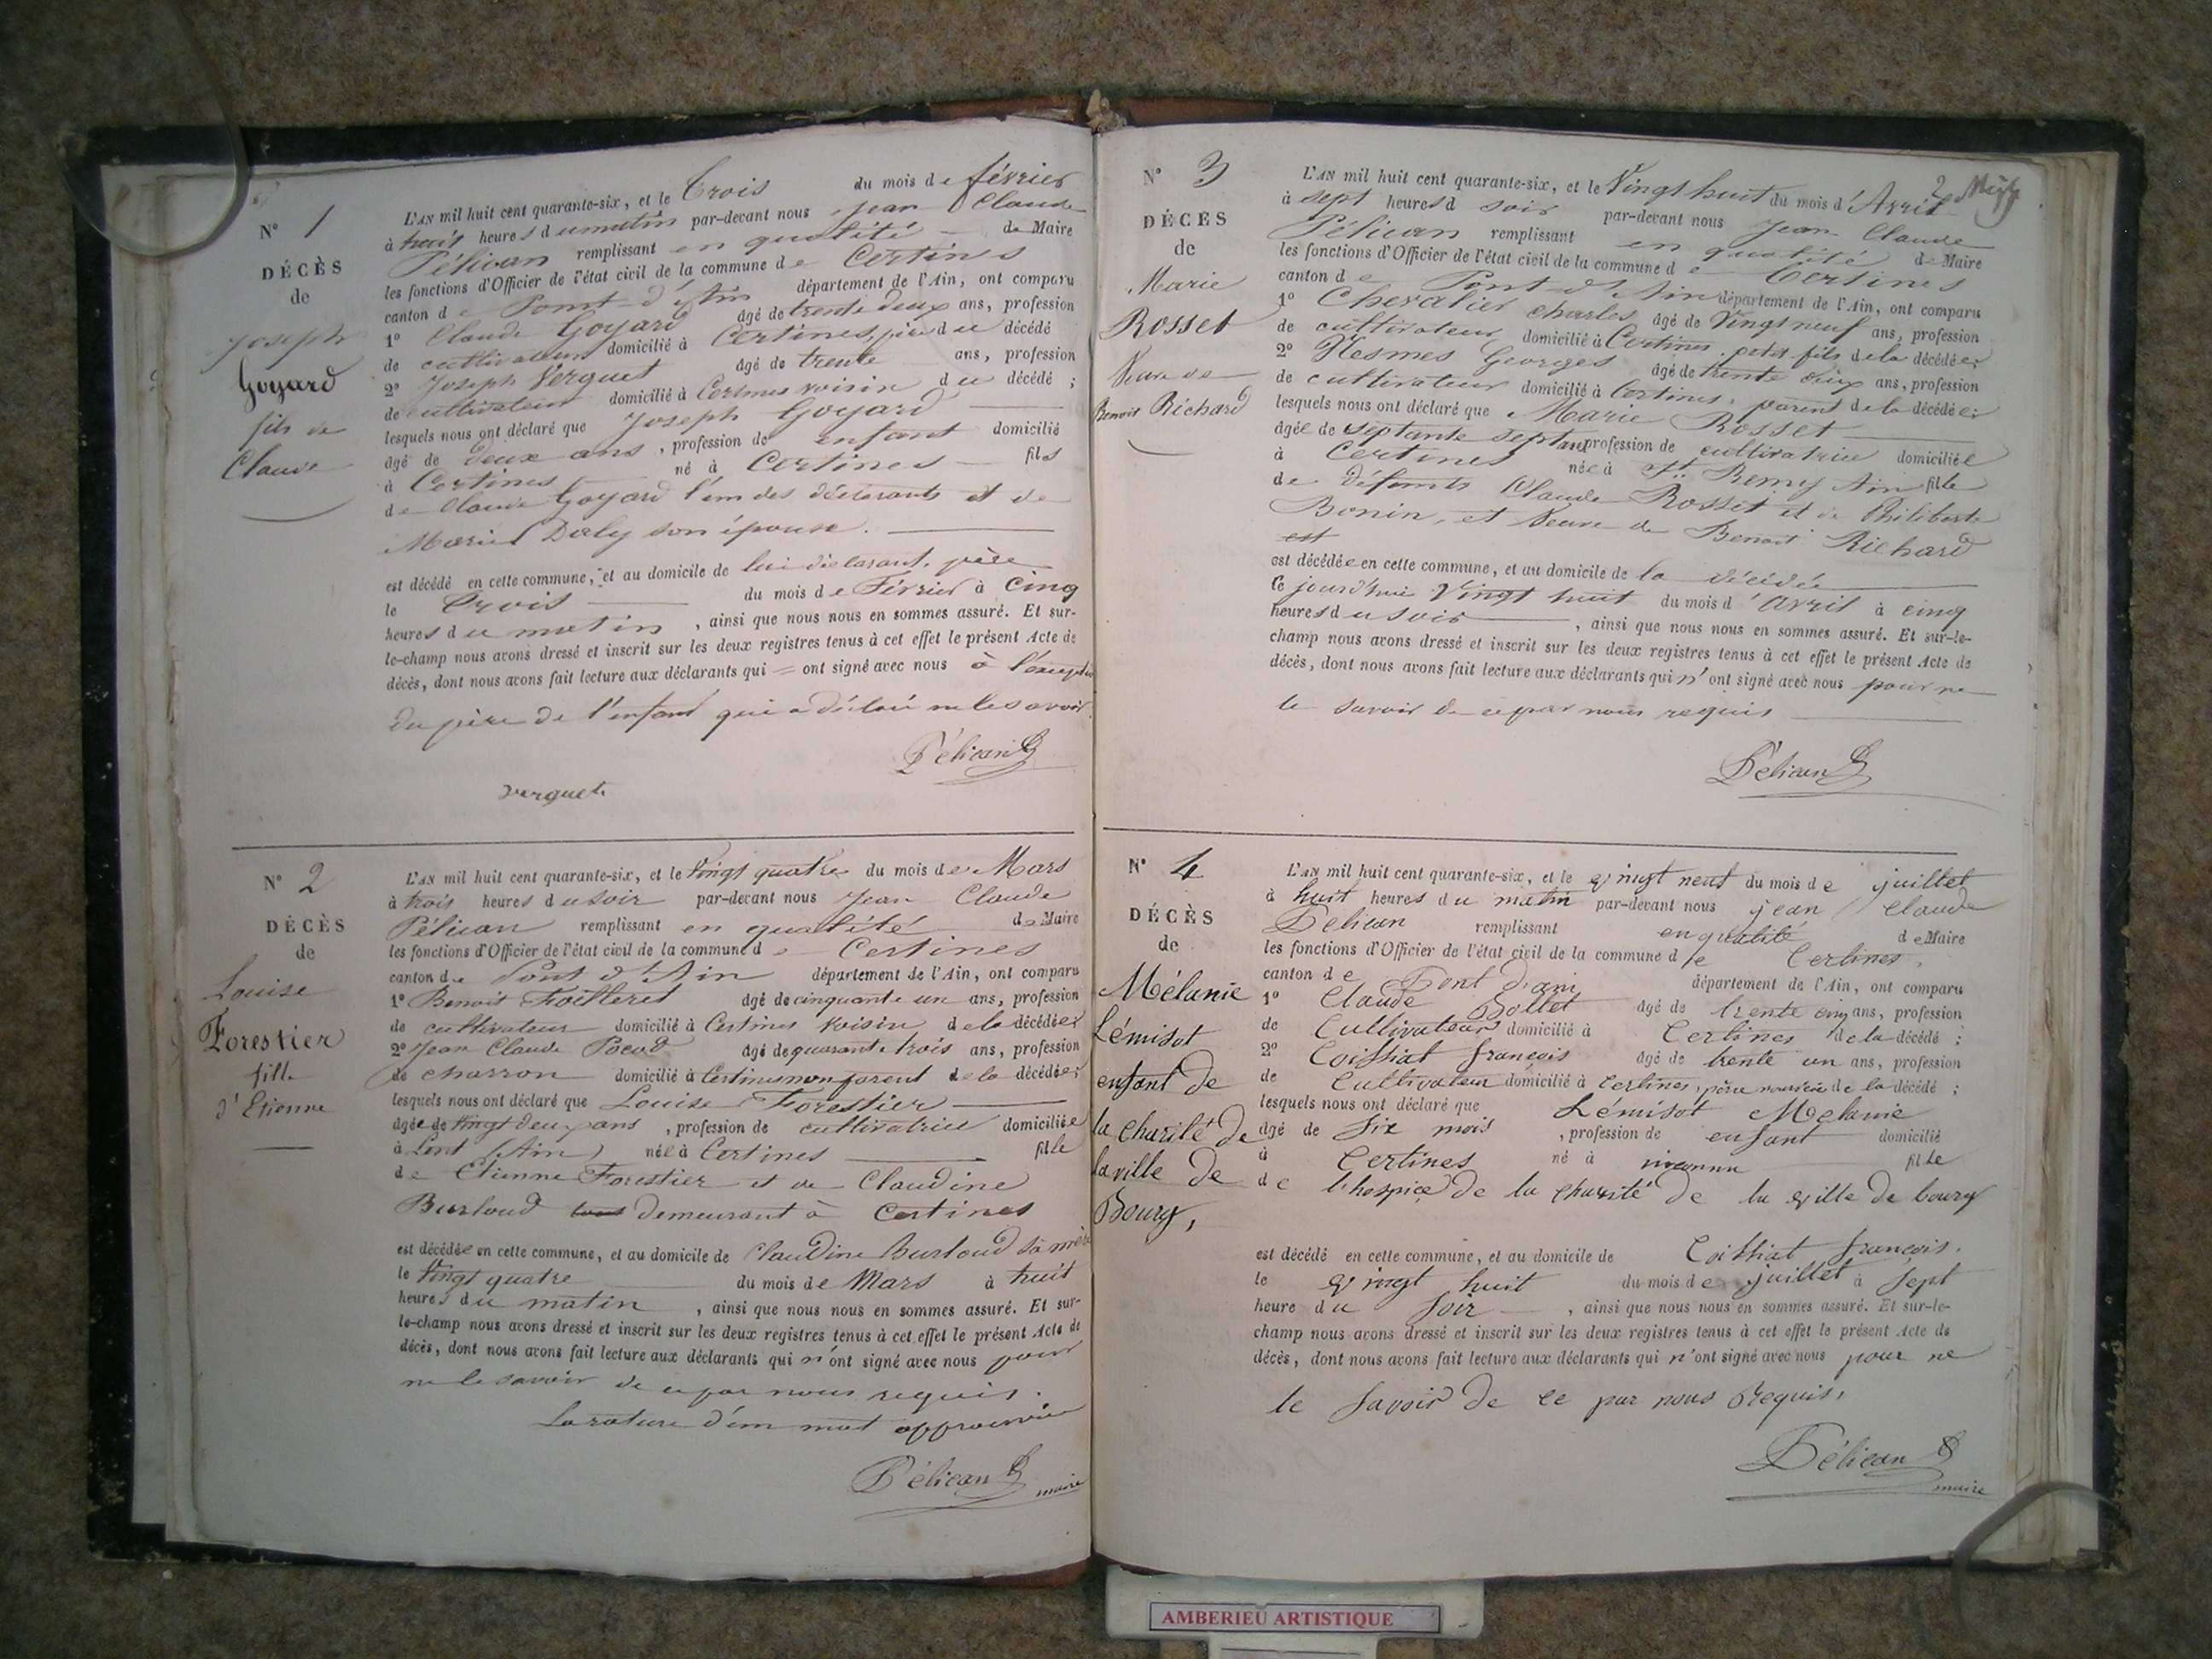 N° 1
DÉCÈS
de
Joseph
Goyard
fils de
Claude
L'AN mil huit cent quarante-six, et le Trois du mois de février
à huit heures du matin par-devant nous Jean Claude
Pélican remplissant en qualité de Maire
les fonctions d'Officier de l'état civil de la commune de Certines
canton de Pont-d'Ain département de l'Ain, ont comparu
1° Claude Goyard âgé de trente deux ans, profession
de cultivateur domicilié à Certines, père du décédé
2° Joseph Verguet âgé de trente ans, profession
de cultivateur domicilié à Certines voisin du décédé ;
lesquels nous ont déclaré que Joseph Goyard
âgé de deux ans, profession de enfant domicilié
à Certines né à Certines fils
de Claude Goyard l'un des déclarants et de
Marie Daly son épouse.
est décédé en cette commune, et au domicile de lui déclarant, père
le Trois du mois de Février à cinq
heures du matin, ainsi que nous nous en sommes assuré. Et sur-
le-champ nous avons dressé et inscrit sur les deux registres tenus à cet effet le présent Acte de
décès, dont nous avons fait lecture aux déclarants qui = ont signé avec nous à l'exception
du père de l'enfant qui a déclaré ne le savoir
Pélican
verguet
N° 2
DÉCÈS
de
Louise
Forestier
fille
d'Etienne
L'AN mil huit cent quarante-six, et le Vingt quatre du mois de Mars
à trois heures du soir par-devant nous Jean Claude
Pélican remplissant en qualité de Maire
les fonctions d'Officier de l'état civil de la commune de Certines
canton de Pont d'Ain département de l'Ain, ont comparu
1° Benoit Foilleret âgé de cinquante un ans, profession
de cultivateur domicilié à Certines voisin de la décédée
2° Jean Claude Pocod âgé de quarante trois ans, profession
de charron domicilié à Certines non parent de la décédée ;
lesquels nous ont déclaré que Louise Forestier
âgée de vingt deux ans, profession de cultivatrice domiciliée
à Lent (Ain) née à Certines fille
de Etienne Forestier et de Claudine
Burloud demeurant à Certines
est décédée en cette commune, et au domicile de Claudine Burloud sa mère
le Vingt quatre du mois de Mars à huit
heures du matin, ainsi que nous nous en sommes assuré. Et sur-
le-champ nous avons dressé et inscrit sur les deux registres tenus à cet effet le présent Acte de
décès, dont nous avons fait lecture aux déclarants qui n'ont signé avec nous pour
ne le savoir de ce par nous requis.
La rature d'un mot approuvée
Pélican maire
N° 3
DÉCÈS
de
Marie
Rosset
Veuve de
Benoit Richard
2e
L'AN mil huit cent quarante-six, et le Vingt huit du mois d'Avril
à sept heures d soir par-devant nous Jean Claude
Pélican remplissant en qualité de Maire
les fonctions d'Officier de l'état civil de la commune de Certines
canton de Pont d'Ain département de l'Ain, ont comparu
1° Chevalier charles âgé de Vingt neuf ans, profession
de cultivateur domicilié à Certines petit fils de la décédée ;
2° Nesmes Georges âgé de trente deux ans, profession
de cultivateur domicilié à Certines, parent de la décédée ;
lesquels nous ont déclaré que Marie Rosset
âgée de septante sept ans profession de cultivatrice domiciliée
à Certines née à St. Remy Ain fille
de défunts Claude Rosset et de Philiberte
Bonin, et Veuve de Benoit Richard
est
est décédée en cette commune, et au domicile de la décédée
Ce jourd'hui Vingt huit du mois d'avril à cinq
heures du soir, ainsi que nous nous en sommes assuré. Et sur-le-
champ nous avons dressé et inscrit sur les deux registres tenus à cet effet le présent Acte de
décès, dont nous avons fait lecture aux déclarants qui n'ont signé avec nous pour ne
le savoir de ce par nous requis
Pélican
N° 4
DÉCÈS
de
Mélanie
Lémisot
enfant de
la charité de
la ville de
Bourg,
L'AN mil huit cent quarante-six, et le vingt neuf du mois de juillet
à huit heures du matin par-devant nous jean Claude
Pélican remplissant en qualité de Maire
les fonctions d'Officier de l'état civil de la commune de Certines,
canton de Pont d'ain département de l'Ain, ont comparu
1° Claude Bollet âgé de trente cinq ans, profession
de Cultivateur domicilié à Certines de la décédé ;
2° Coissiat françois âgé de trente un ans, profession
de Cultivateur domicilié à Certines, père nourricier de la décédé ;
lesquels nous ont déclaré que Lémisot Mélanie
âgé de six mois, profession de enfant domicilié
à Certines né à inconnu fille
de l'hospice de la charité de la ville de bourg
est décédé en cette commune, et au domicile de Coissiat françois.
le vingt huit du mois de juillet à sept
heure du soir, ainsi que nous nous en sommes assuré. Et sur-le-
champ nous avons dressé et inscrit sur les deux registres tenus à cet effet le présent Acte de
décès, dont nous avons fait lecture aux déclarants qui n'ont signé avec nous pour ne
le savoir de ce par nous requis,
Pélican maire
AMBERIEU ARTISTIQUE